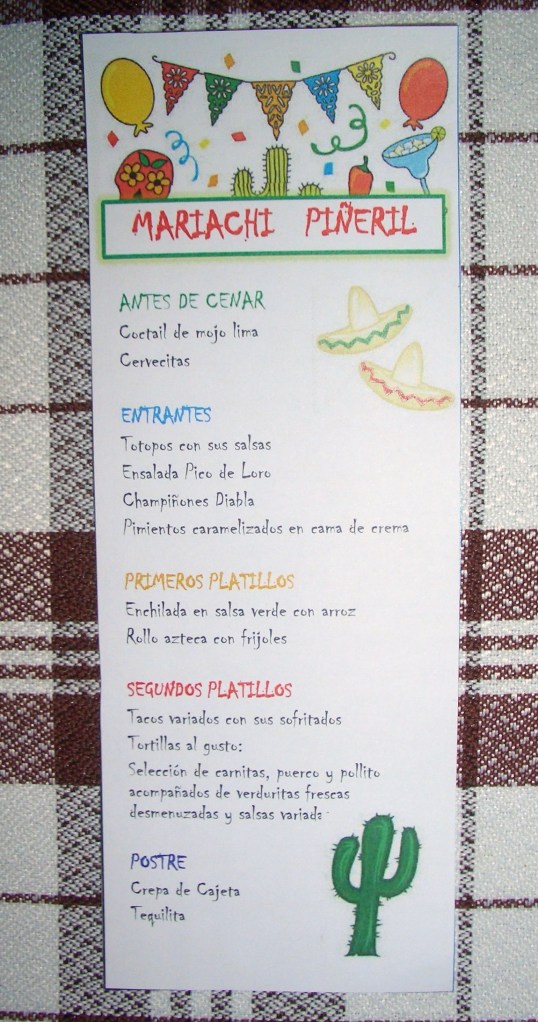 VIVA
MARIACHI PIÑERIL
ANTES DE CENAR
Coctail de mojo lima
Cervecitas
ENTRANTES
Totopos con sus salsas
Ensalada Pico de Loro
Champiñones Diabla
Pimientos caramelizados en cama de crema
PRIMEROS PLATILLOS
Enchilada en salsa verde con arroz
Rollo azteca con frijoles
SEGUNDOS PLATILLOS
Tacos variados con sus sofritados
Tortillas al gusto:
Selección de carnitas, puerco y pollito
acompañados de verduritas frescas
desmenuzadas y salsas variada
POSTRE
Crepa de Cajeta
Tequilita